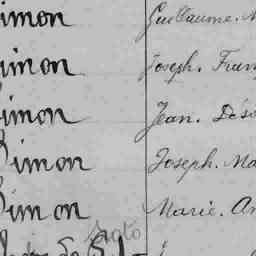 Simon Guillaume. M
Simon Joseph. Fran
Simon Jean. Dés
Simon Joseph. Ma
Simon Marie. An